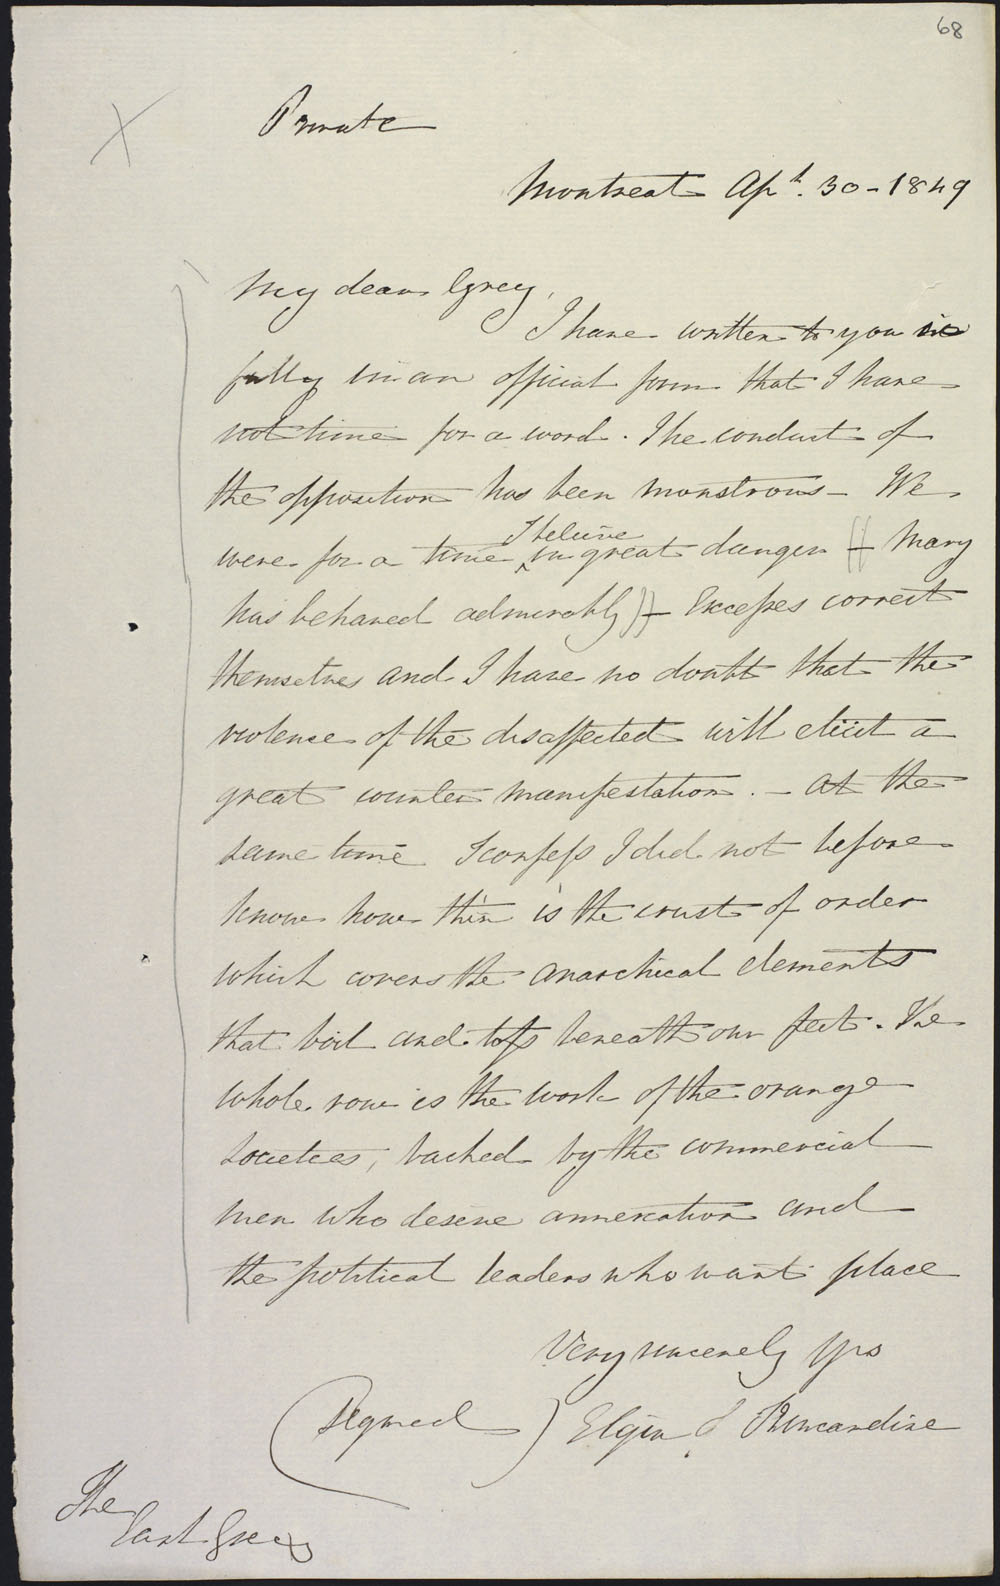 68
Private
Montreal Apl. 30 - 1849
My dear Grey,
I have written to you so
fully in an official form that I have
not time for a word. The conduct of
the opposition has been monstrous - We
were for a time I believe in great danger - (Mary
has behaved admirably) - Excesses correct
themselves and I have no doubt that the
violence of the disaffected will elicit a
great counter manifestation. - At the
same time I confess I did not before
know how thin is the crust of order
which covers the anarchical elements
that boil and toss beneath our feet. The
whole row is the work of the orange
societies, backed by the commercial
men who desire annexation and
the political leaders who want place
Very sincerely Yrs
(Signed) Elgin & Kincardine
The
Earl Grey